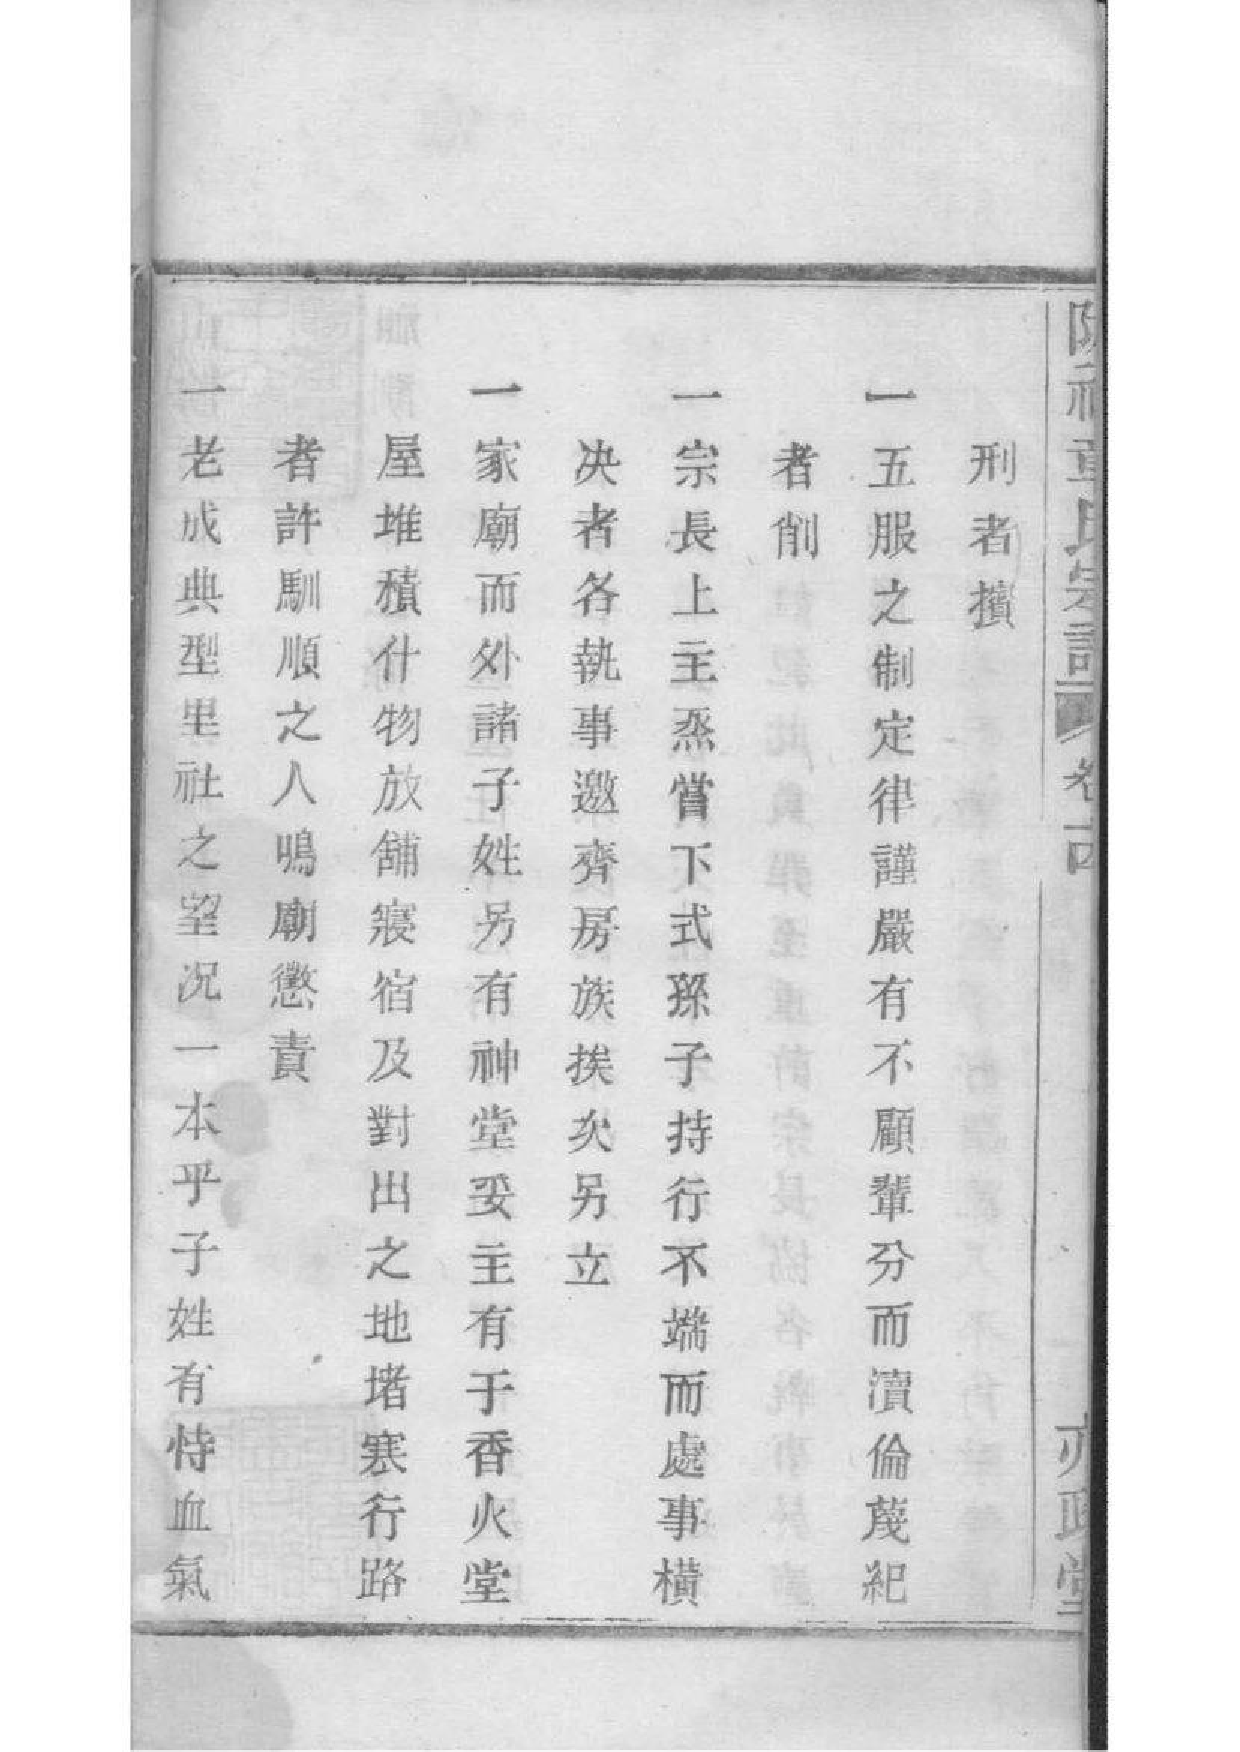 氏宗譜 卷十四 亦政堂
刑者擯
一五服之制定律謹嚴有不顧輩分而瀆倫蔑紀
者削
一宗長上主烝嘗下式孫子持行不端而處事橫
决者各執事邀齊房族挨次另立
一家廟而外諸子姓另有神堂妥主有于香火堂
屋堆積什物放舖寢宿及對出之地堵寨行路
者許馴順之人鳴廟懲責
一老成典型里社之望况一本乎子姓有恃血氣